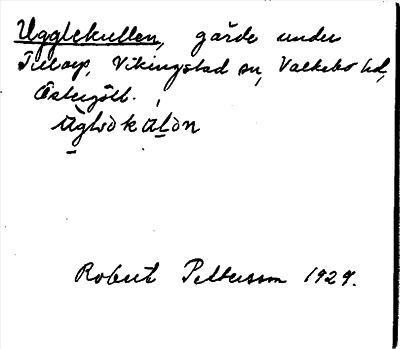 Ugglekullen, gärde under
Tillorp, Vikingstad sn, Valkebo hd,
Östergötl.
Robert Pettersson 1929.